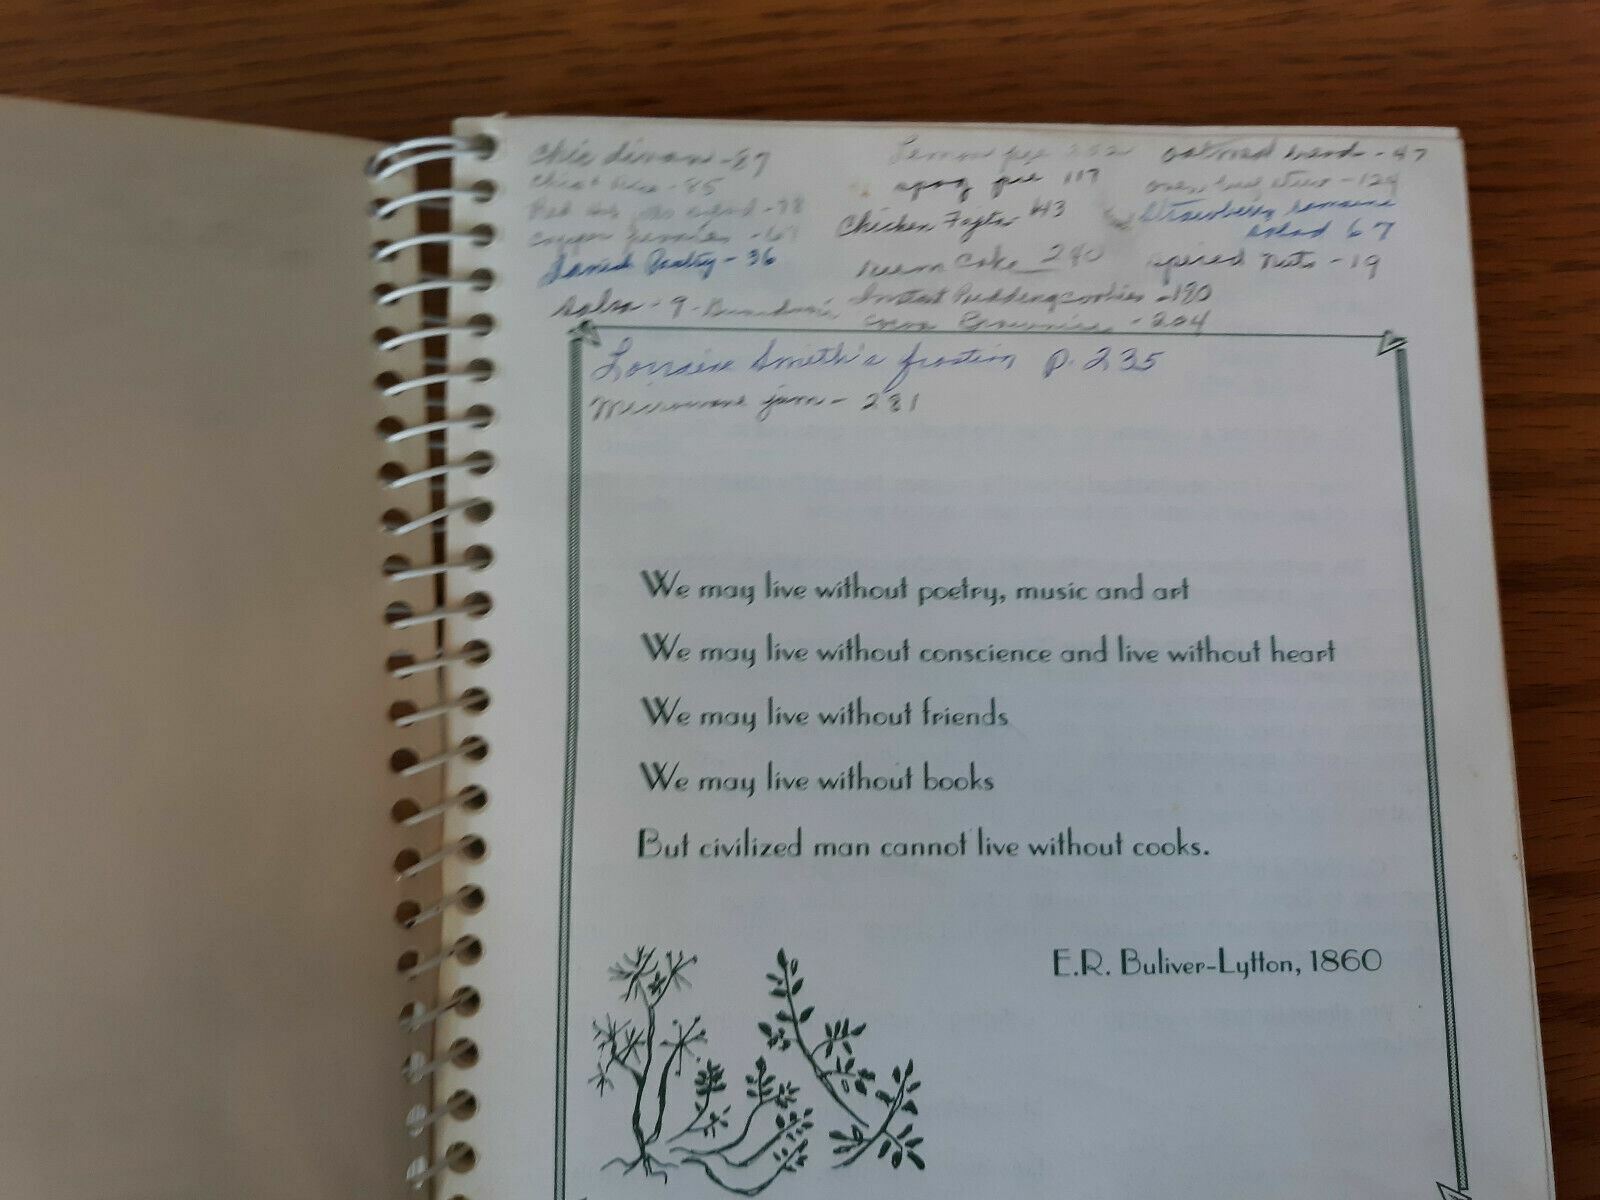 Chic divan - 87
Chic + Rice - 85
Red
copper pennies - 61
Danish Pastry - 36
salsa - 9 -
Lemon pie 252
pie 117
Chicken Fajitas 143
Cake 290
Instant Pudding cookies - 190
cocoa Brownies - 204
oatmeal bread - 47
oven beef stew - 124
Strawberry romaine
salad 67
spiced nuts - 19
Lorraine Smith's frostin p. 235
Microwave jam - 281
We may live without poetry, music and art
We may live without conscience and live without heart
We may live without friends
We may live without books
But civilized man cannot live without cooks.
E.R. Buliver-Lytton, 1860